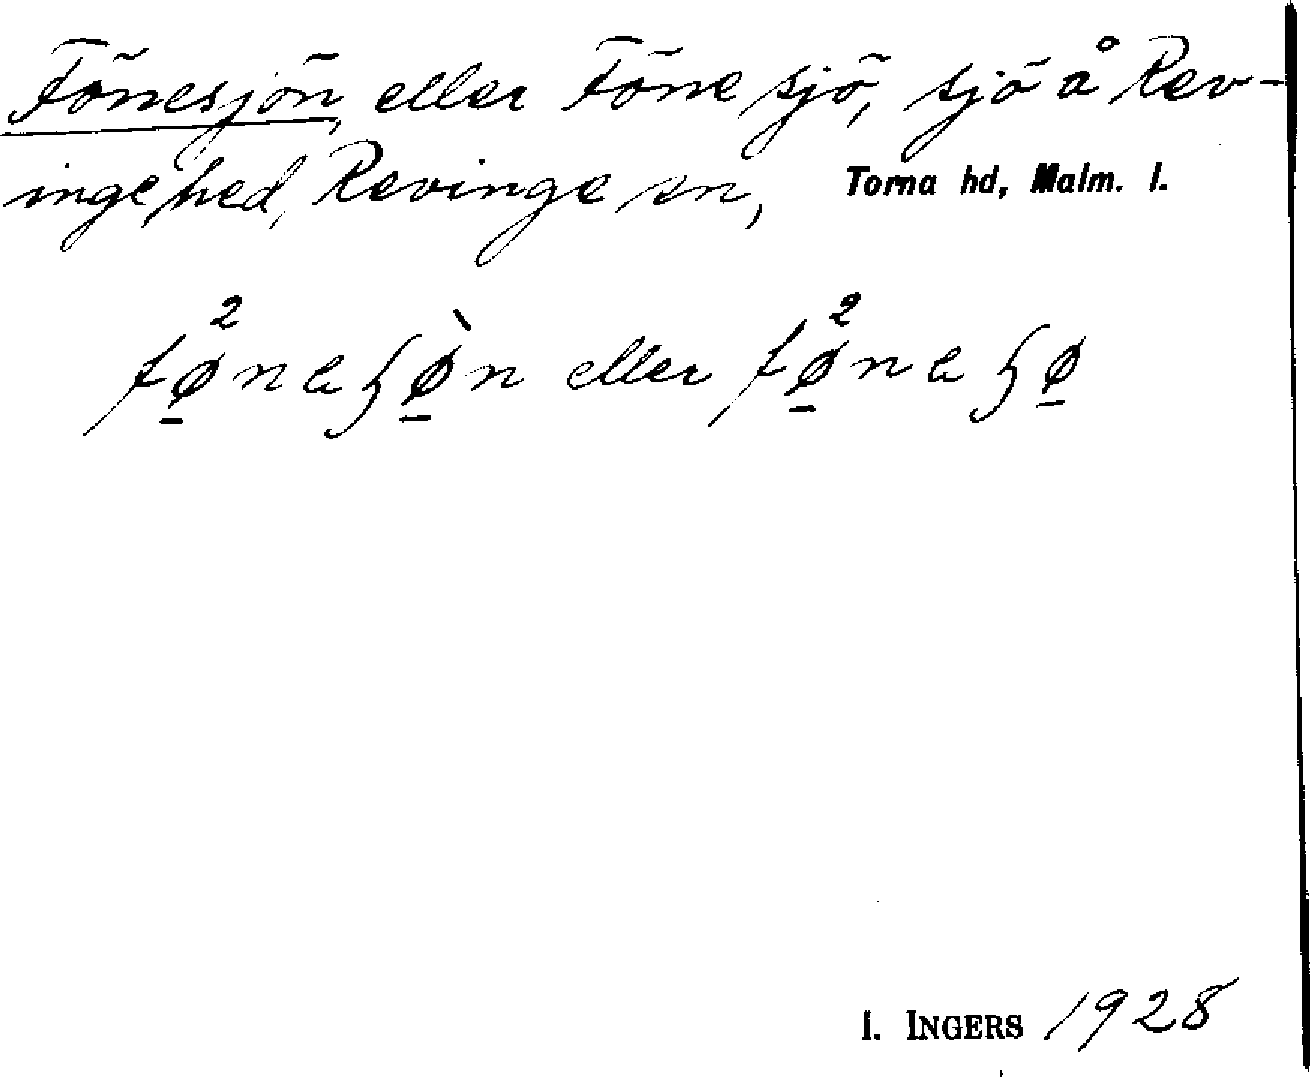 Fönesjön, eller Föne sjö, sjö å Rev-
inge hed, Revinge sn, Torna hd, Malm. l.
fø̠²nəʃø̠̀n eller fø̠²nəʃø̠
I. INGERS 1928